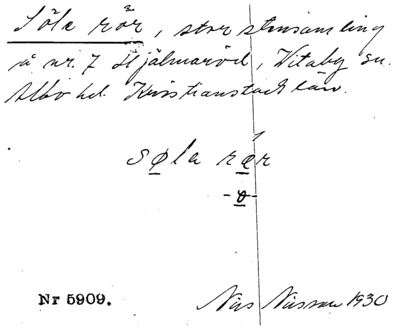 Söla rör, stor stensamling
å nr. 7 Hjälmaröd, Vitaby sn.
Albo hd. Kristianstads län.
søla rær
-ø-
Nr 5909.
Nils Nilsson 1930